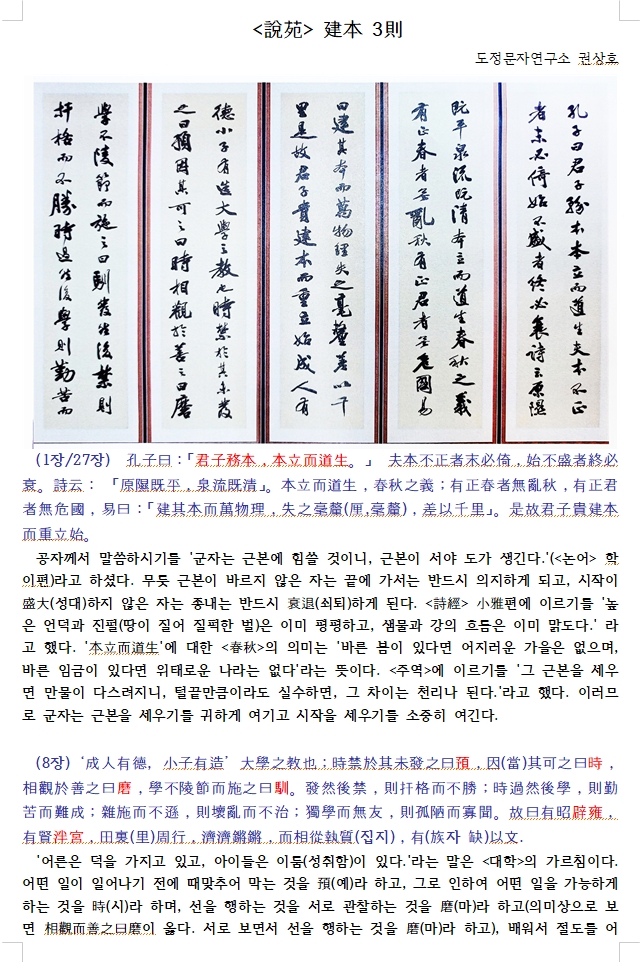 <說苑> 建本 3則
도정문자연구소 권상호
孔子曰君子務本本立而道生夫本不正
者末必倚始不盛者終必衰詩云原隰
既平泉流既清本立而道生春秋之義
有正春者无亂秋有正君者无危國易
曰建其本而萬物理失之毫釐差以千
里是故君子貴建本而重立始成人有
德小子有造大學之教也時禁於其未發
之曰預因其可之曰時相觀於善之曰磨
學不陵節而施之曰馴發然後禁則
扞格而不勝時過然後學則勤苦而
(1장/27장) 孔子曰：「君子務本，本立而道生。」 夫本不正者末必倚，始不盛者終必
衰。詩云： 「原隰既平，泉流既清」。本立而道生，春秋之義；有正春者無亂秋，有正君
者無危國，易曰：「建其本而萬物理，失之毫釐(厘,毫釐)，差以千里」。是故君子貴建本
而重立始。
공자께서 말씀하시기를 '군자는 근본에 힘쓸 것이니, 근본이 서야 도가 생긴다.'(<논어> 학
이편)라고 하셨다. 무릇 근본이 바르지 않은 자는 끝에 가서는 반드시 의지하게 되고, 시작이
盛大(성대)하지 않은 자는 종내는 반드시 衰退(쇠퇴)하게 된다. <詩經> 小雅편에 이르기를 '높
은 언덕과 진펄(땅이 질어 질퍽한 벌)은 이미 평평하고, 샘물과 강의 흐름은 이미 맑도다.' 라
고 했다. '本立而道生'에 대한 <春秋>의 의미는 '바른 봄이 있다면 어지러운 가을은 없으며,
바른 임금이 있다면 위태로운 나라는 없다'라는 뜻이다. <주역>에 이르기를 '그 근본을 세우
면 만물이 다스려지니, 털끝만큼이라도 실수하면, 그 차이는 천리나 된다.'라고 했다. 이러므
로 군자는 근본을 세우기를 귀하게 여기고 시작을 세우기를 소중히 여긴다.
(8장) '成人有德, 小子有造' 大學之教也；時禁於其未發之曰預，因(當)其可之曰時，
相觀於善之曰磨，學不陵節而施之曰馴。發然後禁，則扞格而不勝；時過然後學，則勤
苦而難成；雜施而不遜，則壞亂而不治；獨學而無友，則孤陋而寡聞。故曰有昭辟雍，
有賢泮宮，田裏(里)周行，濟濟鏘鏘，而相從執質(집지)，有(族자 缺)以文.
'어른은 덕을 가지고 있고, 아이들은 이룸(성취함)이 있다.'라는 말은 <대학>의 가르침이다.
어떤 일이 일어나기 전에 때맞추어 막는 것을 預(예)라 하고, 그로 인하여 어떤 일을 가능하게
하는 것을 時(시)라 하며, 선을 행하는 것을 서로 관찰하는 것을 磨(마)라 하고(의미상으로 보
면 相觀而善之曰磨이 옳다. 서로 보면서 선을 행하는 것을 磨(마)라 하고), 배워서 절도를 어